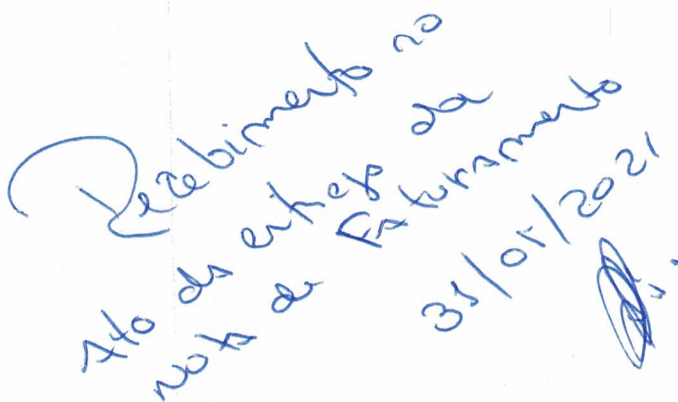 Recebimento no
Ato da entrega da
Nota de Faturamento
31/05/2021